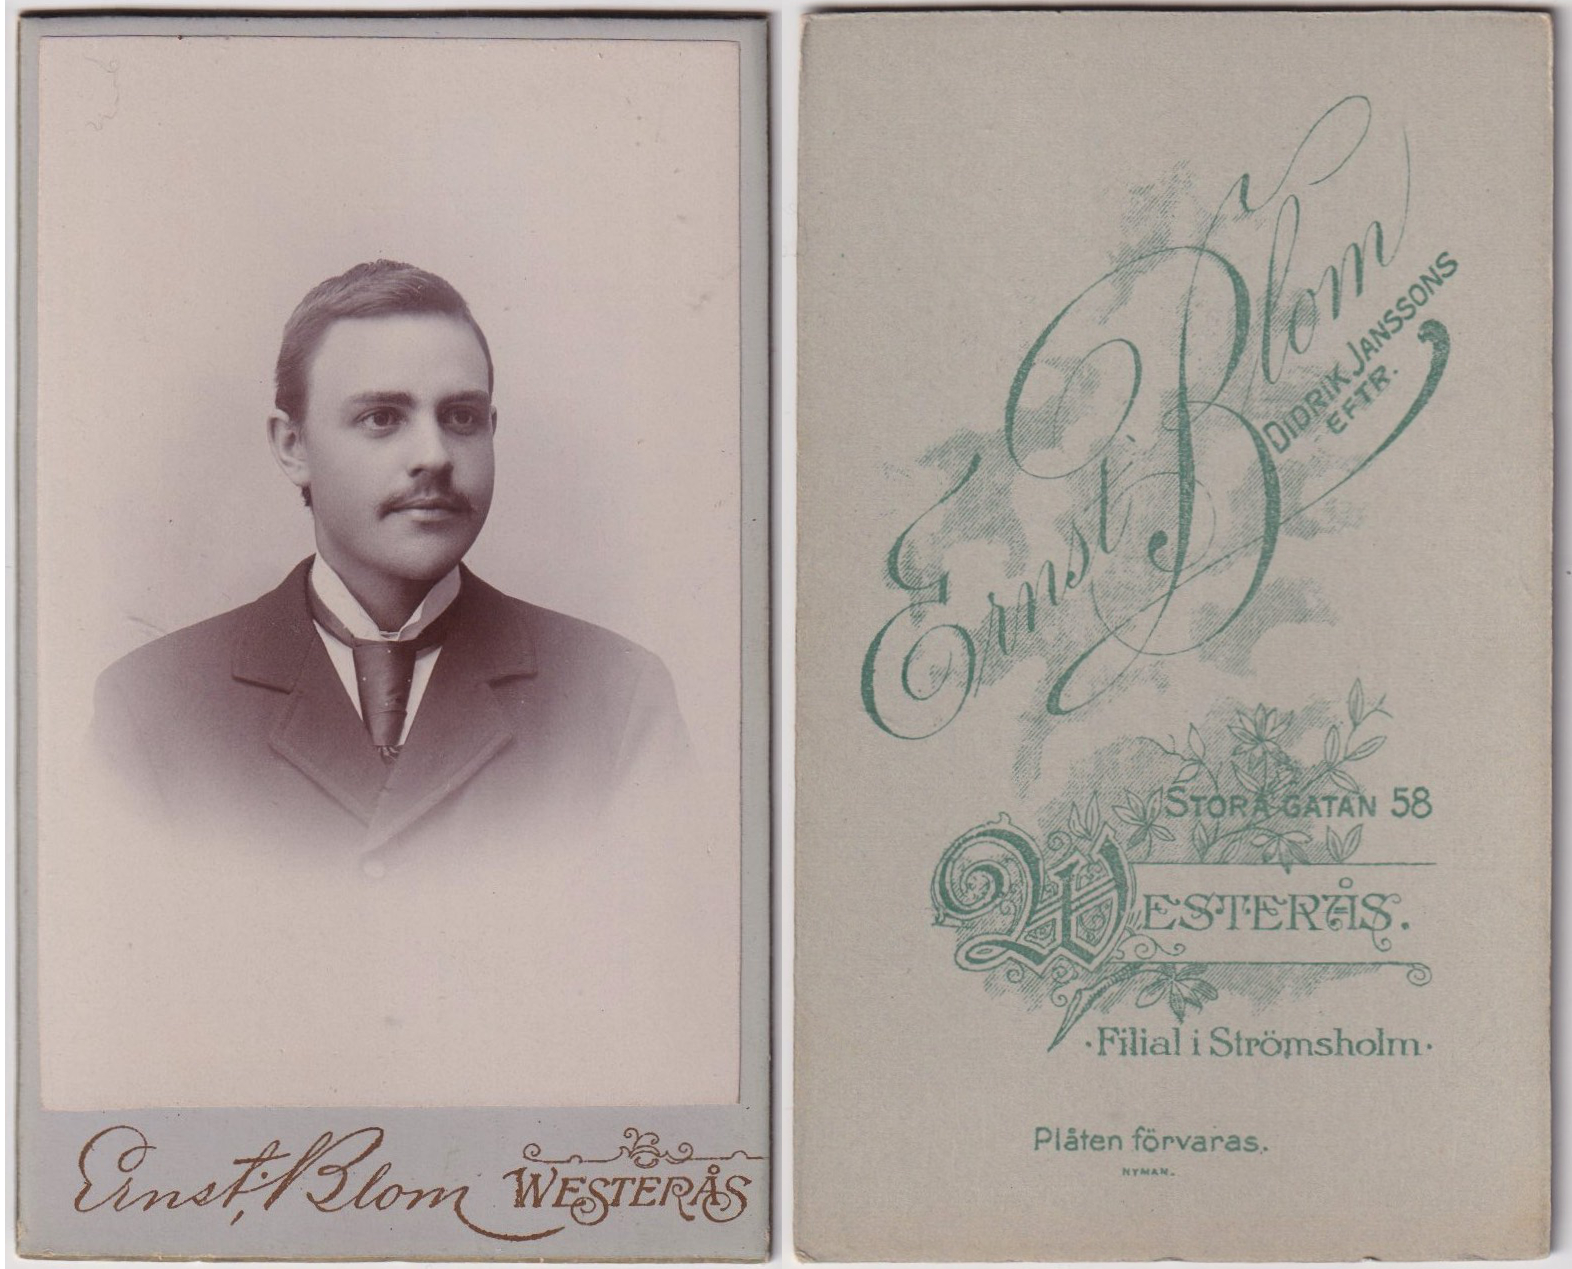 Ernst Blom WESTERÅS
Ernst Blom
DIDRIK JANSSONS
EFTR.
STORA GATAN 58
WESTERÅS.
·Filial i Strömsholm·
Plåten förvaras.
NYMAN.